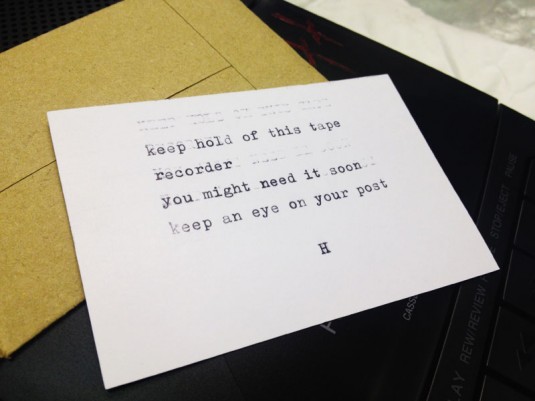 keep hold of this tape
recorder
you might need it soon
keep an eye on your post
H
PAUSE
STOP/EJECT
REW/REVIEW